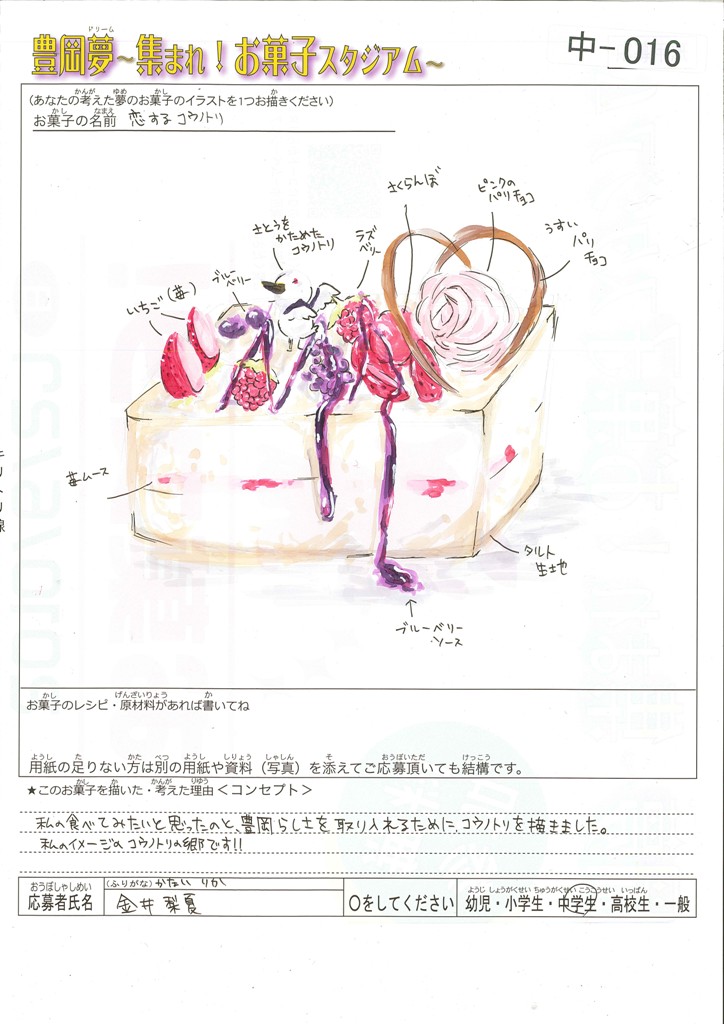 豊岡夢~集まれ!お菓子スタジアム~
ドリーム
中-016
(あなたの考えた夢のお菓子のイラストを1つお描きください)
お菓子の名前 恋するコウノトリ
さくらんぼ
ピンクの
パリチョコ
うすい
パリ
チョコ
さとうを
かためた
コウノトリ
ラズ
ベリー
ブルー
ベリー
いちご(苺)
苺ムース
タルト
生土也
ブルーベリー
ソース
お菓子のレシピ・原材料があれば書いてね
用紙の足りない方は別の用紙や資料(写真)を添えてご応募頂いても結構です。
★このお菓子を描いた・考えた理由<コンセプト>
私の食べてみたいと思ったのと、豊岡らしさを取り入れるために、コウノトリを描きました。
私のイメージのコウノトリの郷です!!
応募者氏名
(ふりがな)かない りか
金井 梨夏
○をしてください
幼児・小学生・中学生・高校生・一般